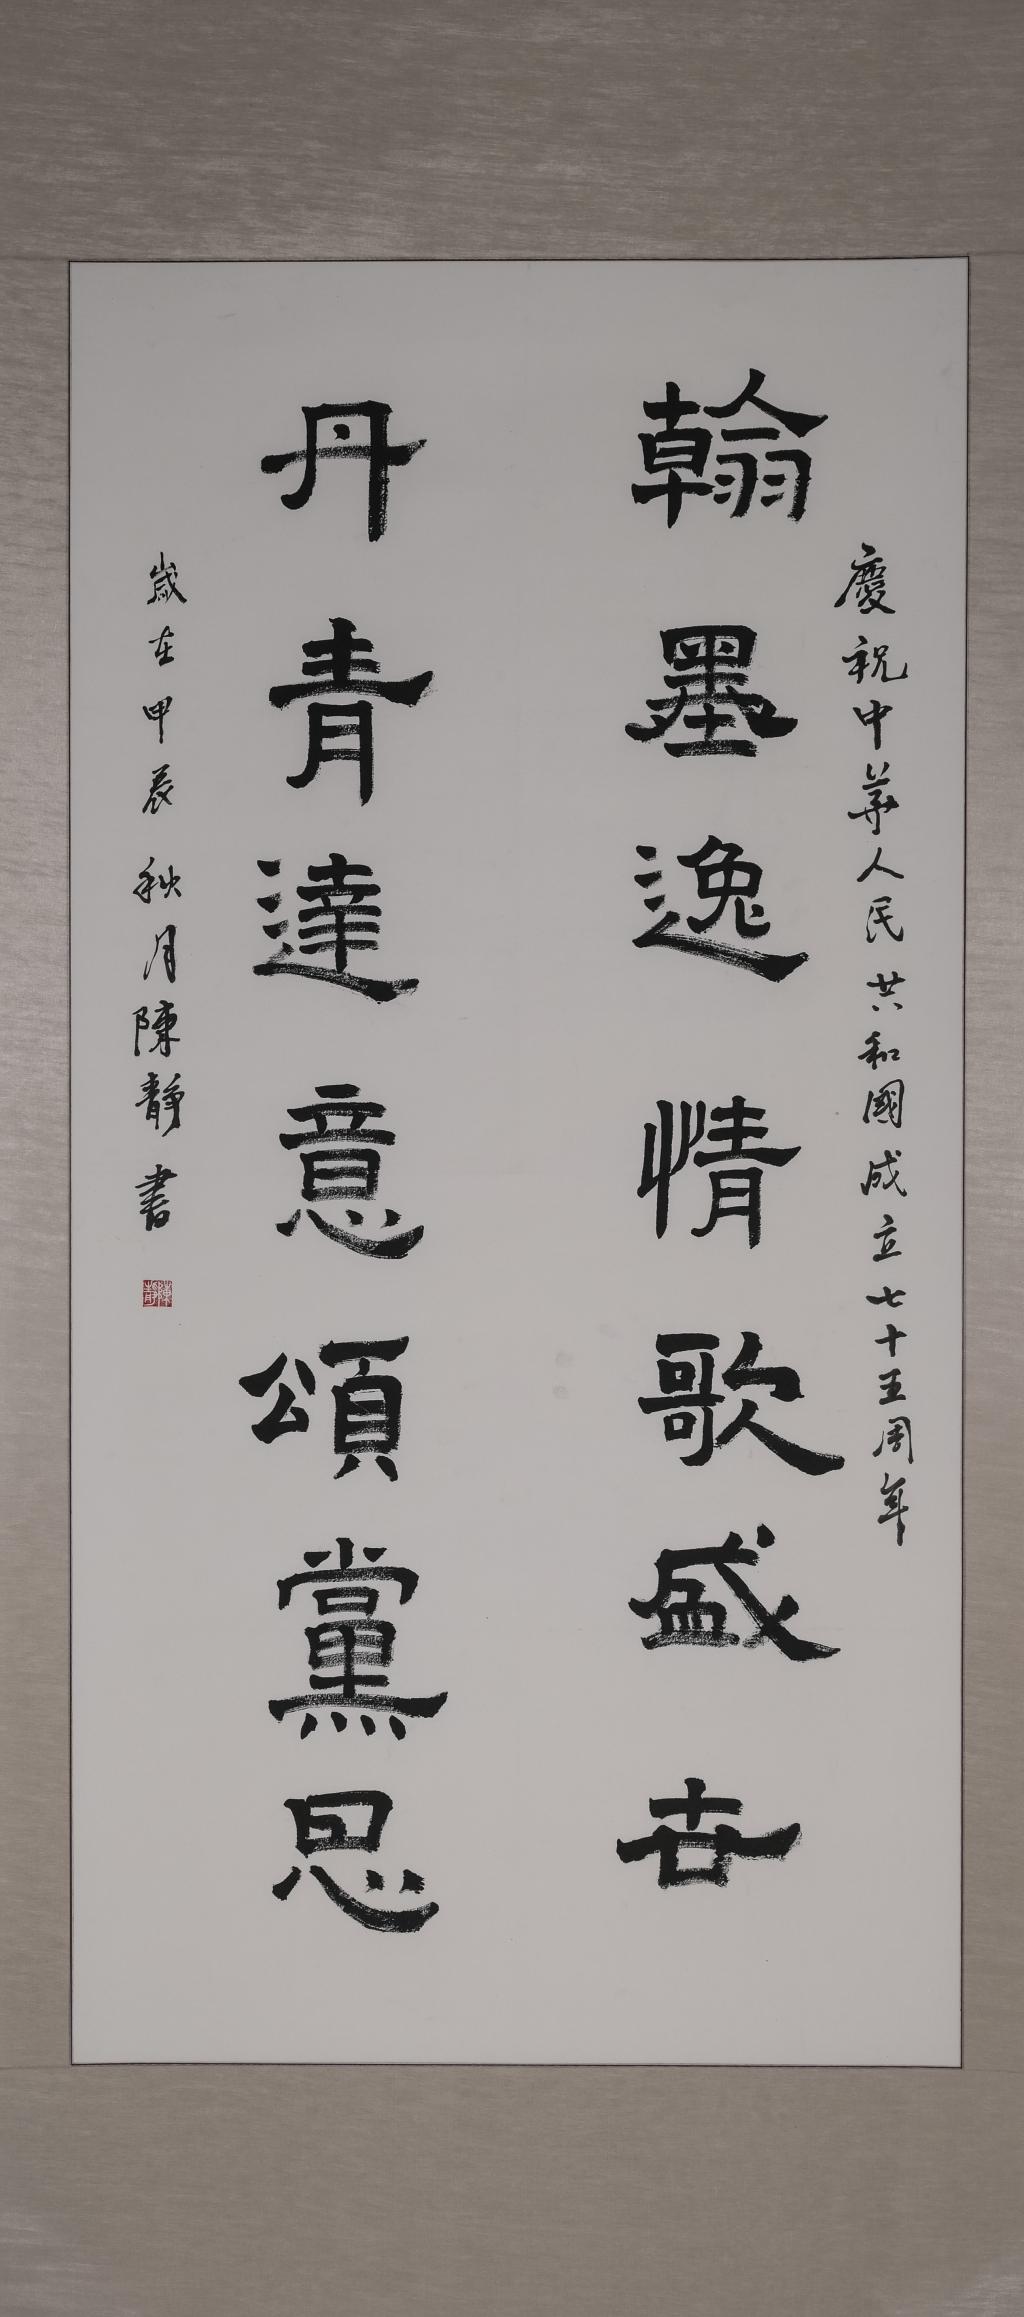 慶祝中華人民共和國成立七十五周年
翰墨逸情歌盛世
丹青達意頌黨恩
歲在甲辰秋月陳靜書
陳靜